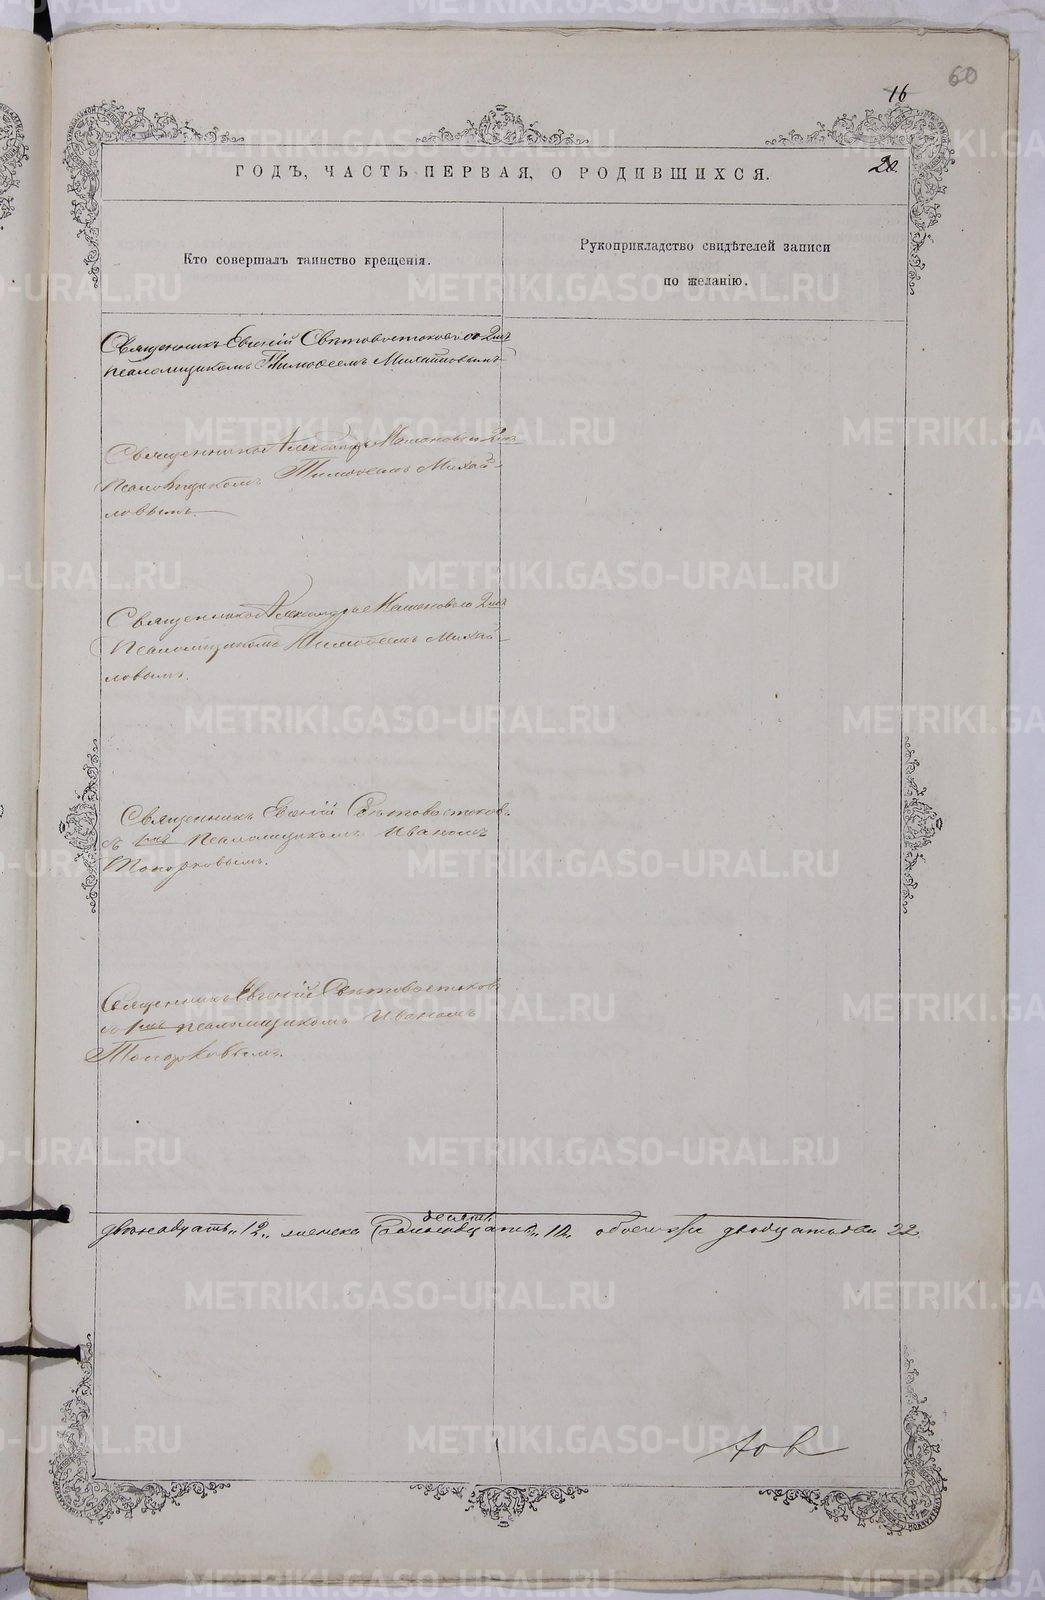 60
16
20.
ГОДЪ, ЧАСТЬ ПЕРВАЯ, О РОДИВШИХСЯ.
Кто совершалъ таинство крещенія.
Рукоприкладство свидѣтелей записи
по желанію.
Священникъ Евгеній Свѣтовостоковъ со 2мъ
псаломщикомъ Тимоѳеемъ Михайловымъ
Священникъ Александръ 2мъ
Псаломщикомъ Тимоѳеемъ Михай-
ловымъ.
Священникъ Александръ 2мъ
Псаломщикомъ Тимоѳеемъ Михай-
ловымъ.
Священникъ Евгеній Свѣтовостоковъ
съ 1мъ Псаломщикомъ Иваномъ
Топорковымъ.
Священникъ Евгеній Свѣтовостоковъ
съ 1мъ псаломщикомъ Иваномъ
Топорковымъ.
десять
двѣнадцать „12„ женска „10„ обоего двадцать два 22
METRIKI.GASO-URAL.RU